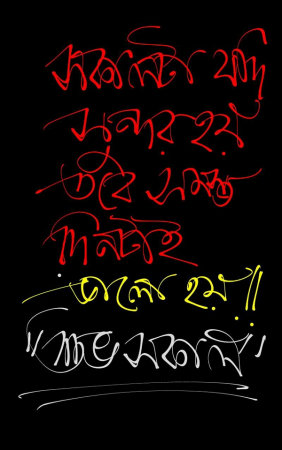 সকালটা যদি
সুন্দর হয়
তবে সমস্ত
দিনটাই
ভালো হয়॥
"শুভ সকাল"